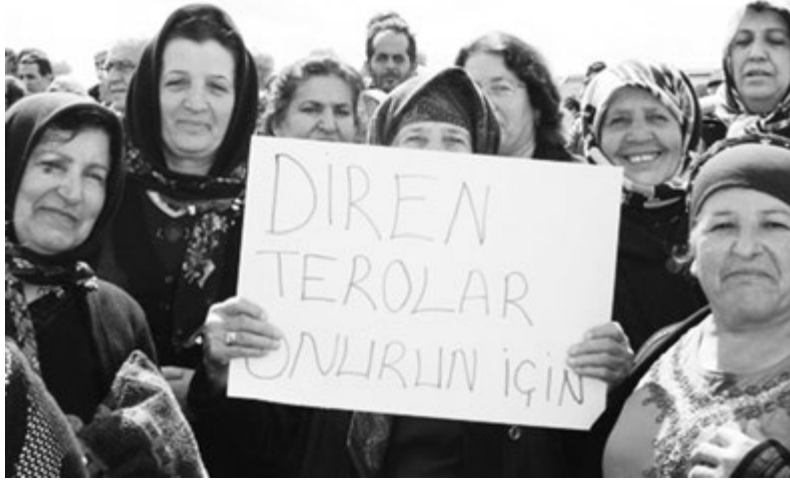 DİREN
TEROLAR
ONURUN İÇİN